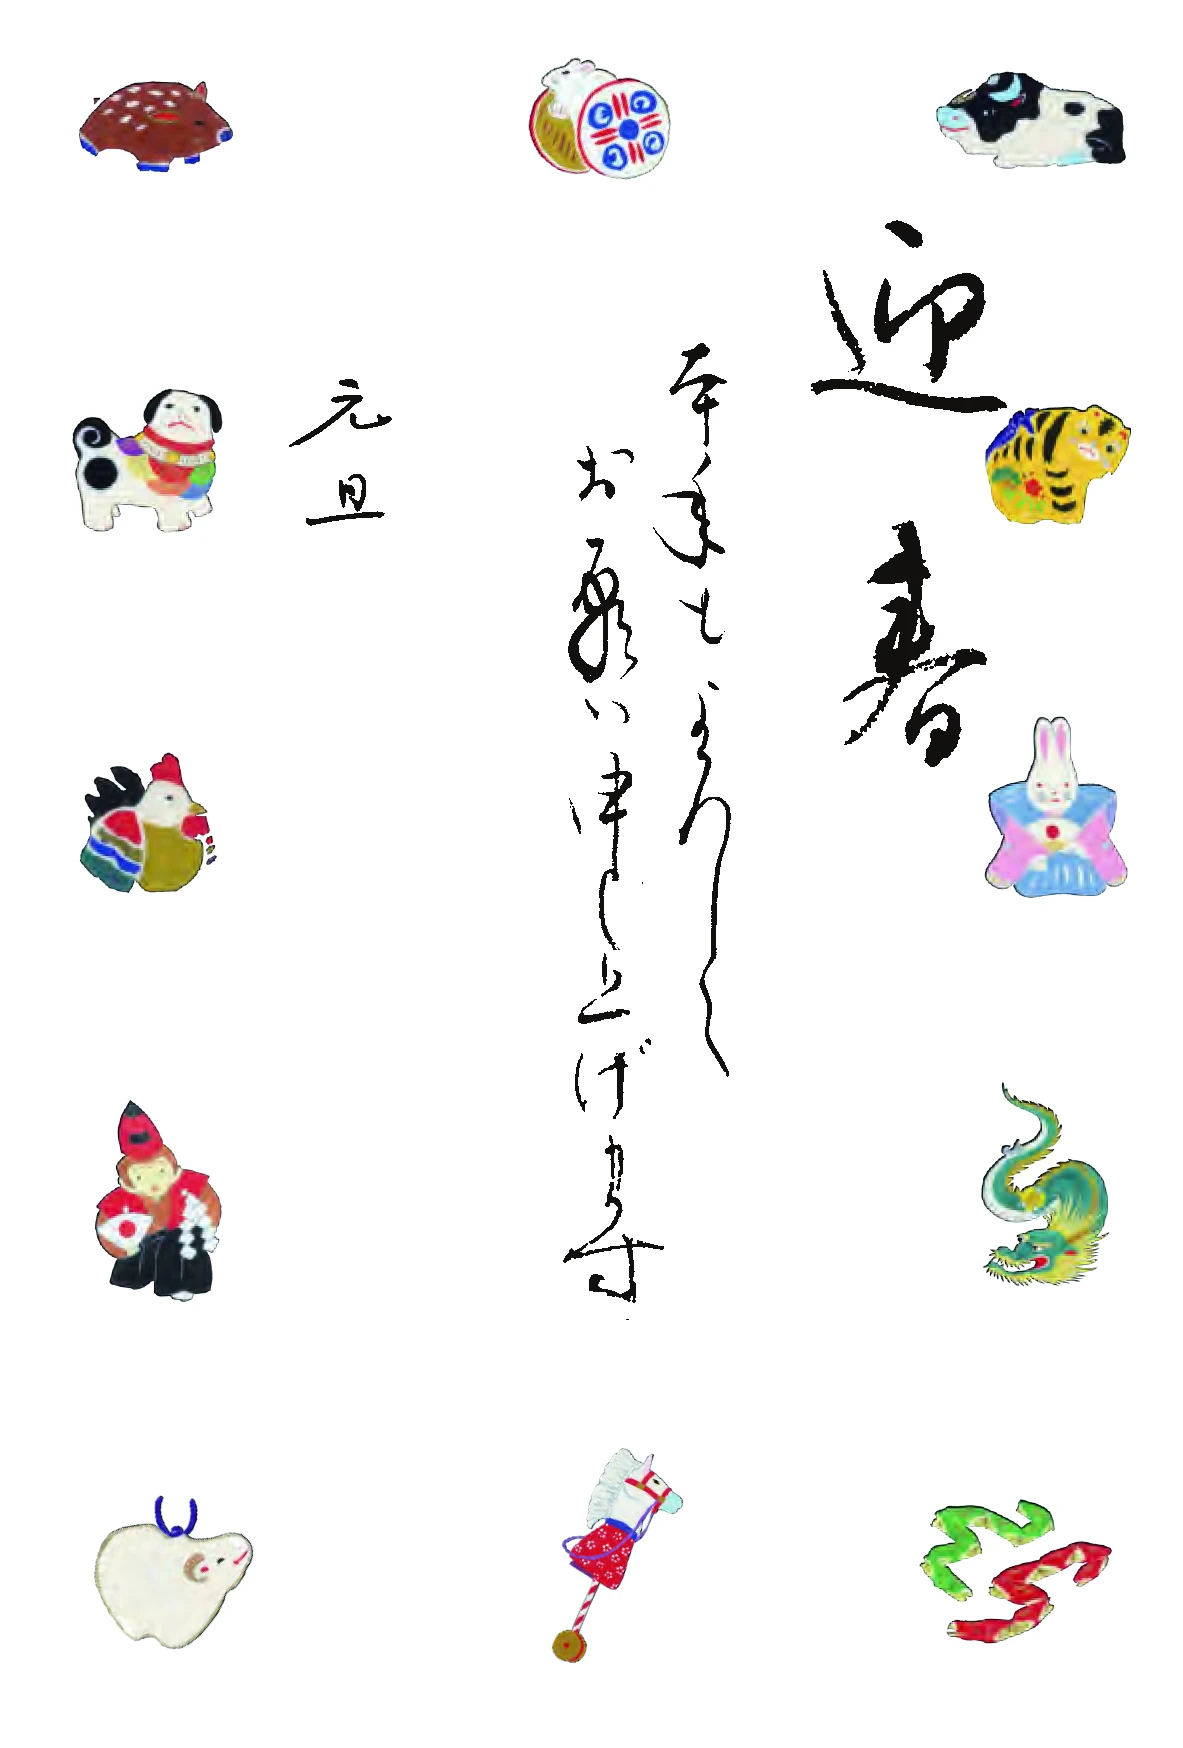 迎春
本年もよろしく
お願い申し上げます
元旦